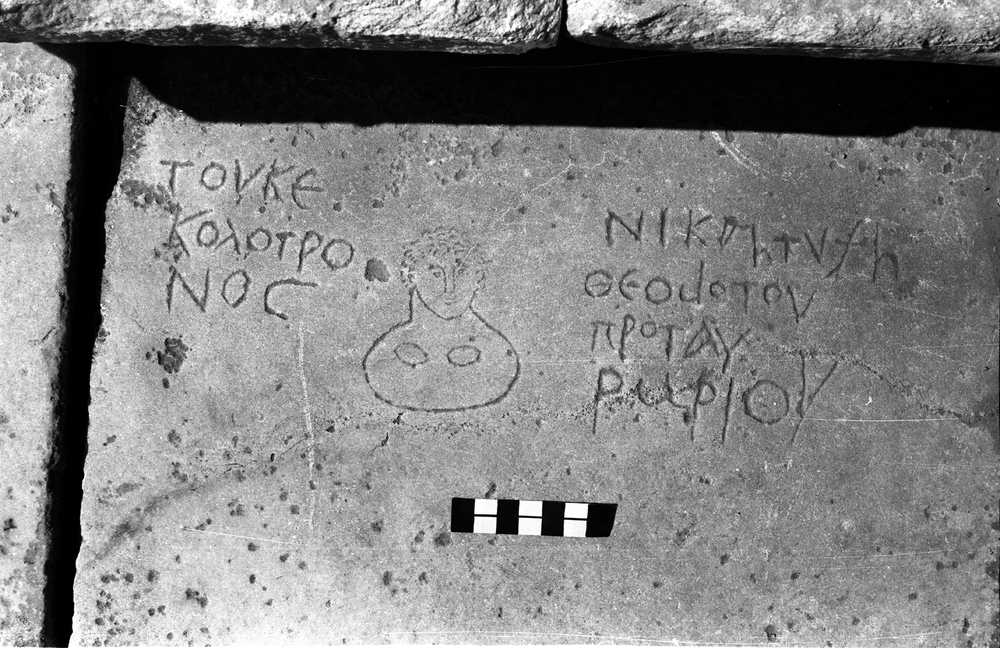 ΤΟΥΚΕ
ΚΟΛΟΤΡΟ
ΝΟϹ
ΝΙΚΑΗΤΥΧΗ
ΘΕΟΔΟΤΟΥ
ΠΡΟΤΑΥ
ΡΑΡΙΟΥ